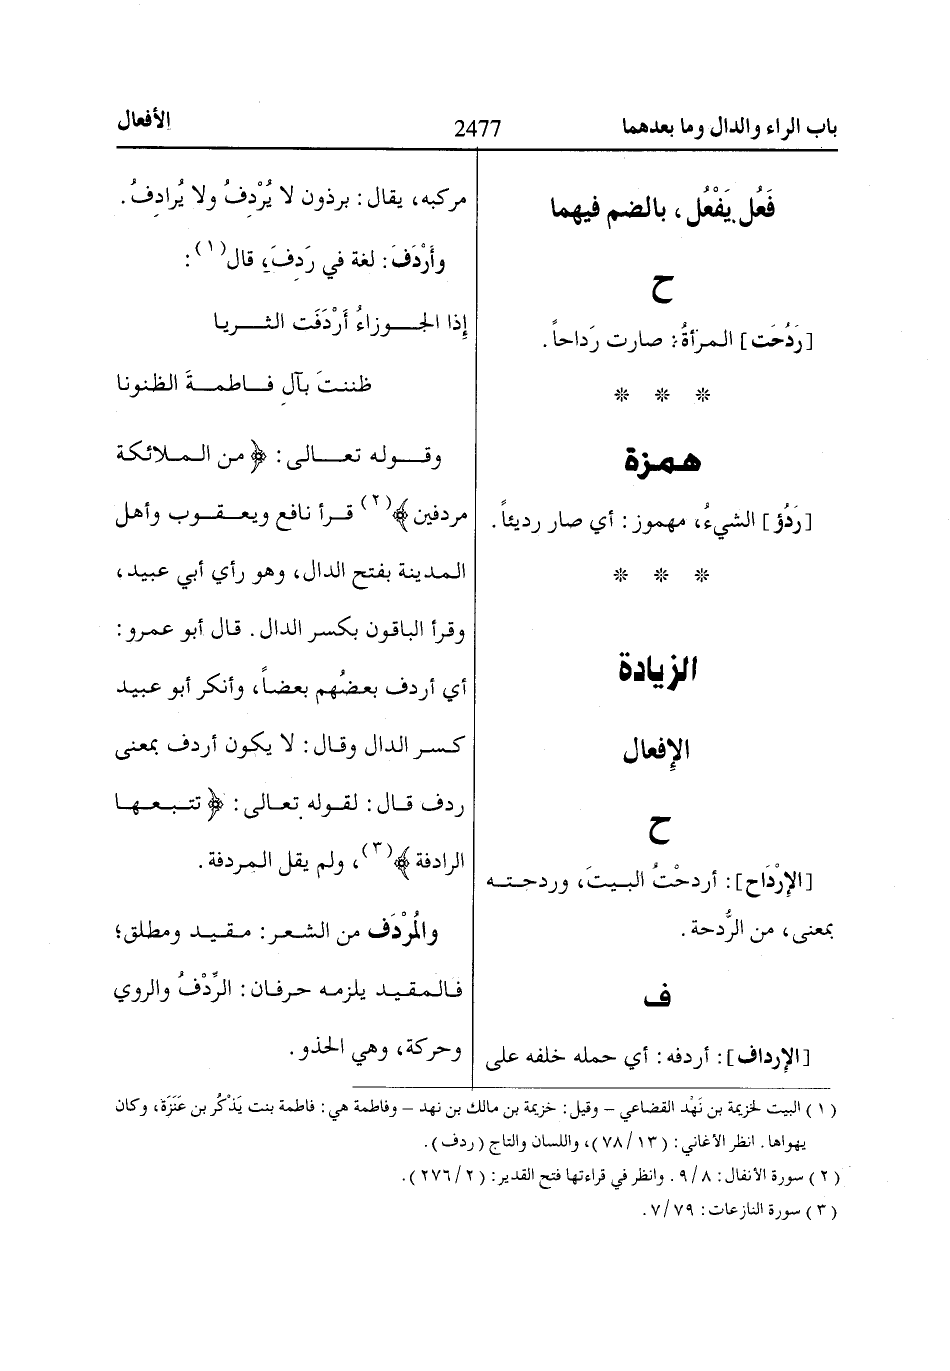 باب الراء والدال وما بعدهما
2477
الأفعال
فَعُل يَفْعُل، بالضم فيهما
ح
[رَدُحَت] المرأةُ: صارت رَداحاً.
* * *
همزة
[رَدُؤ] الشيءُ، مهموز: أي صار رديئاً.
* * *
الزيادة
الإفعال
ح
[الإرْدَاح]: أردحْتُ البيتَ، وردحته
بمعنى، من الرُّدحة.
ف
[الإرداف]: أردفه: أي حمله خلفه على
مركبه، يقال: برذون لا يُرْدِفُ ولا يُرادِفُ.
وأَرْدَفَ: لغة في رَدِفَ، قال(١):
إذا الجوزاءُ أَرْدَفَت الثريا
ظننتَ بآلِ فاطمةَ الظنونا
وقوله تعالى: ﴿من الملائكة
مردفين﴾(٢) قرأ نافع ويعقوب وأهل
المدينة بفتح الدال، وهو رأي أبي عبيد،
وقرأ الباقون بكسر الدال. قال أبو عمرو:
أي أردف بعضُهم بعضاً، وأنكر أبو عبيد
كسر الدال وقال: لا يكون أردف بمعنى
ردف قال: لقوله تعالى: ﴿تتبعها
الرادفة﴾(٣)، ولم يقل المردفة.
والمُرْدَف من الشعر: مقيد ومطلق؛
فالمقيد يلزمه حرفان: الرِّدْفُ والروي
وحركة، وهي الحذو.
(١) البيت لخزيمة بن نَهْد القضاعي – وقيل: خزيمة بن مالك بن نهد – وفاطمة هي: فاطمة بنت يَذْكُر بن عَنَزَة، وكان
يهواها. انظر الأغاني: (١٣/٧٨)، واللسان والتاج (ردف).
(٢) سورة الأنفال: ٨/٩. وانظر في قراءتها فتح القدير: (٢/٢٧٦).
(٣) سورة النازعات: ٧٩/٧.